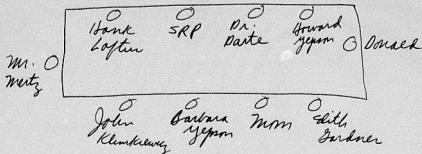 Hank
Loftin
SRP
Dr.
Darte
Howard
Yepson
Donald
Mr.
Mertz
John
Klimkiewicz
Barbara
Yepson
Mom
Edith
Gardner